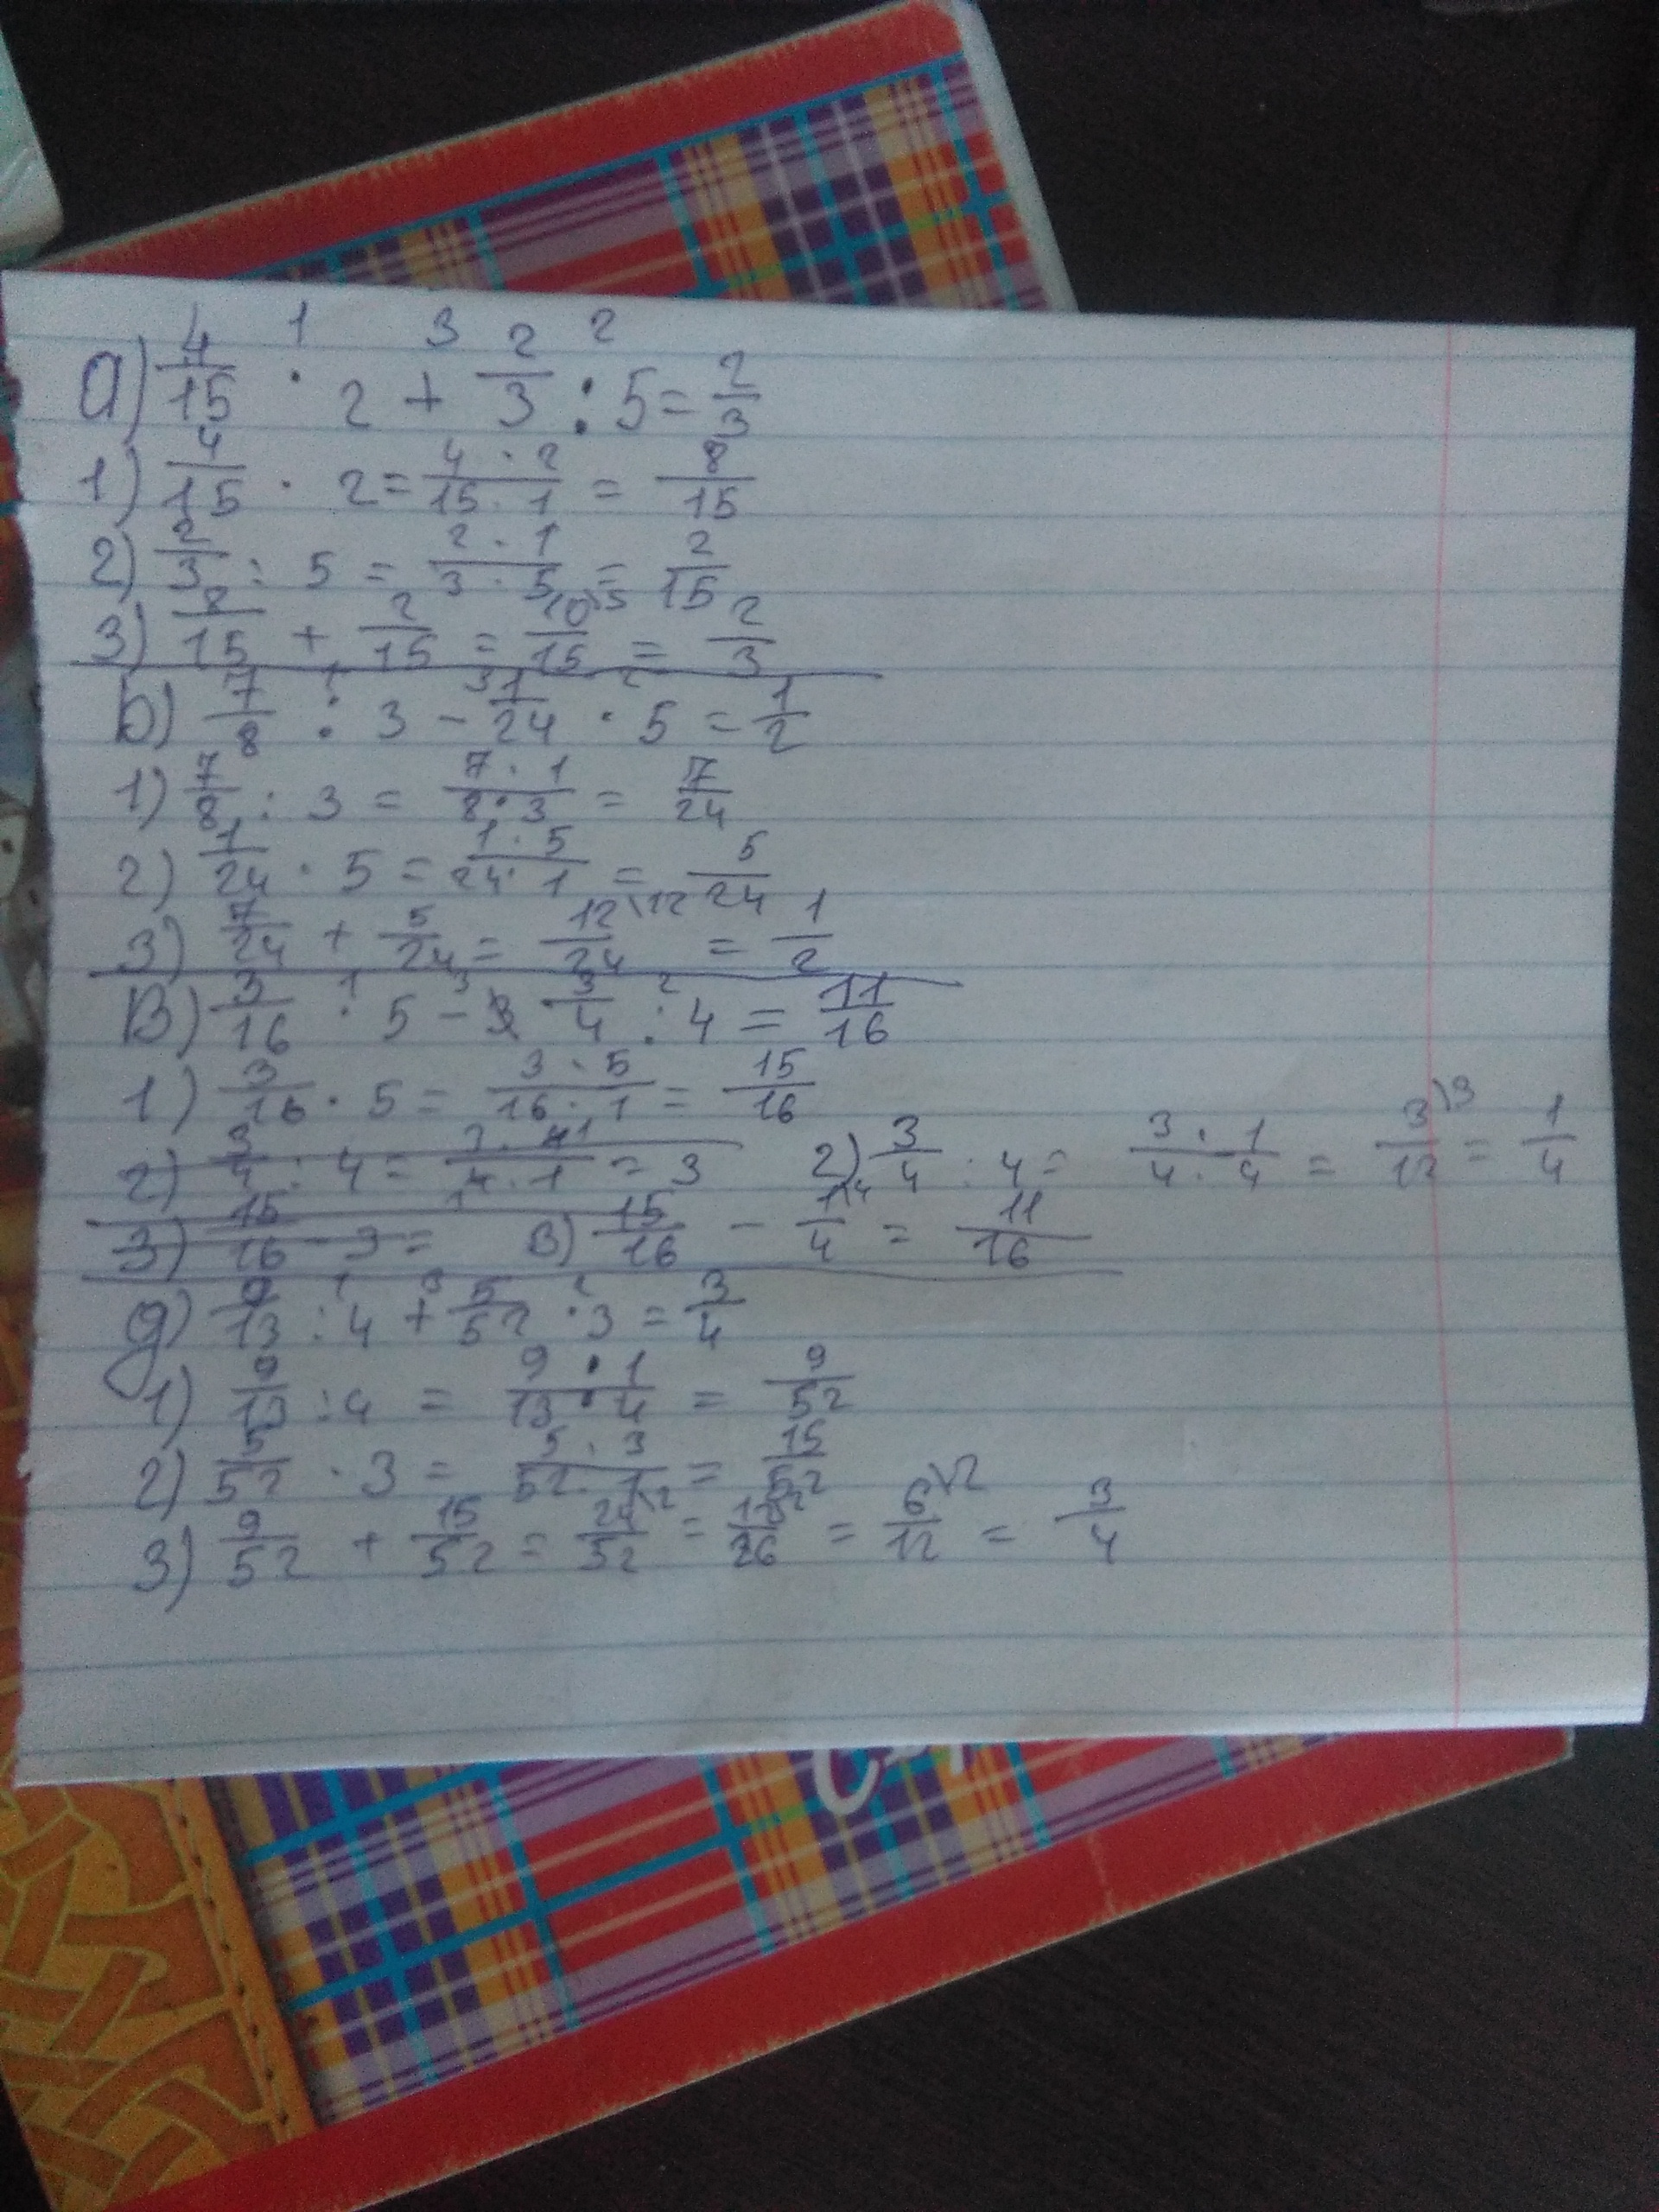 а) 4/15 · 2 + 2/3 : 5 = 2/3
1) 4/15 · 2 = 4 · 2/15 · 1 = 8/15
2) 2/3 : 5 = 2 · 1/3 · 5 = 2/15
3) 8/15 + 2/15 = 10\5/15 = 2/3
b) 7/8 : 3 - 1/24 · 5 = 1/2
1) 7/8 : 3 = 7 · 1/8 · 3 = 7/24
2) 1/24 · 5 = 1 · 5/24 · 1 = 5/24
3) 7/24 + 5/24 = 12\12/24 = 1/2
В) 3/16 · 5 - 3/4 : 4 = 11/16
1) 3/16 · 5 = 3 · 5/16 · 1 = 15/16
2) 3/4 : 4 = 3 · 4/4 · 1 = 3 2) 3/4 : 4 = 3 · 1/4 · 4 = 3\3/12 = 1/4
3) 15/16 - 3 = 3) 15/16 - 1\4/4 = 11/16
g) 9/13 : 4 + 5/52 · 3 = 3/4
1) 9/13 : 4 = 9 · 1/13 · 4 = 9/52
2) 5/52 · 3 = 5 · 3/52 · 1 = 15/52
3) 9/52 + 15/52 = 24\2/52 = 12\2/26 = 6\2/12 = 3/4